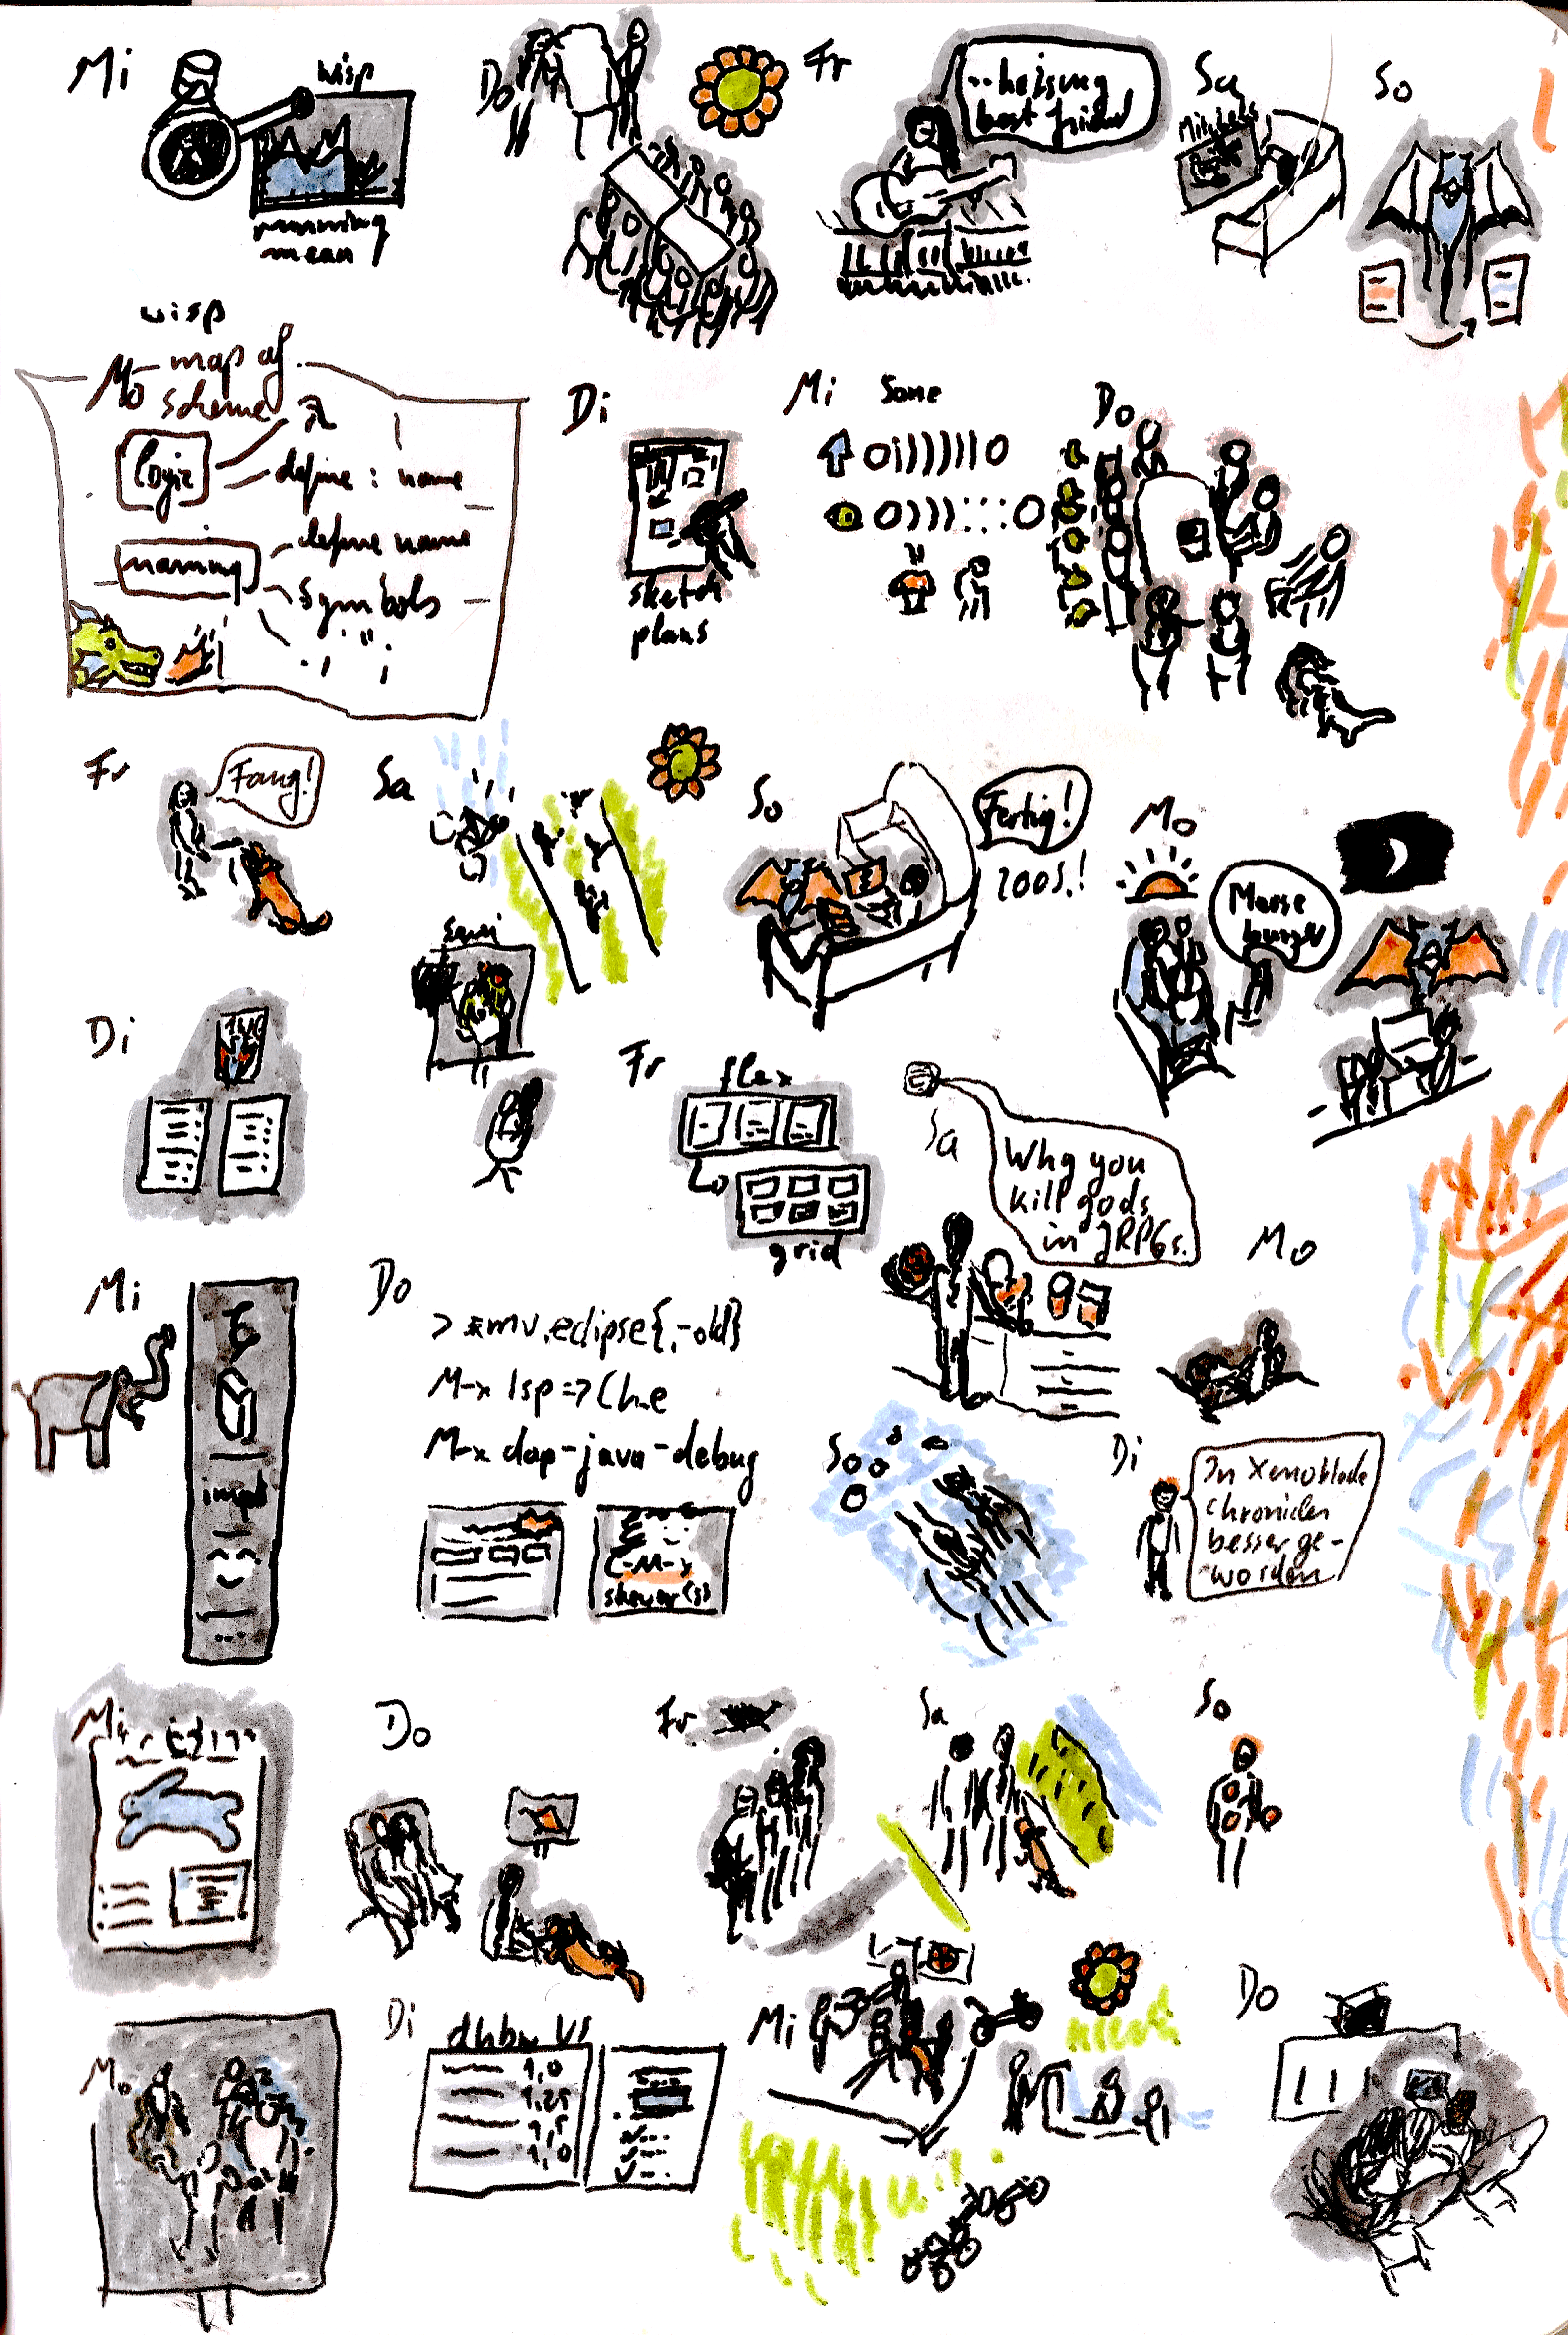 Mi
wisp
running
mean
Do
Fr
best friend
Sa
So
wisp
Mo
map of
scheme
logic
λ
define : name
naming
define name
Symbols
. i " ;
Di
sketch
plans
Mi
Some
Do
Fr
Fang!
Sa
So
Fertig!
200S.!
Mo
Mouse
burger
Di
Fr
flex
grid
Sa
Why you
kill gods
in JRPGs.
Mo
Mi
Do
M-x lsp
M-x dap-java-debug
C-M-x
So
Di
In Xenoblade
Chronicles
besser ge-
worden
Mi
Do
Fr
Sa
So
Mo
Di
dhbw VS
1,0
1,25
1,5
1,0
Mi
Do